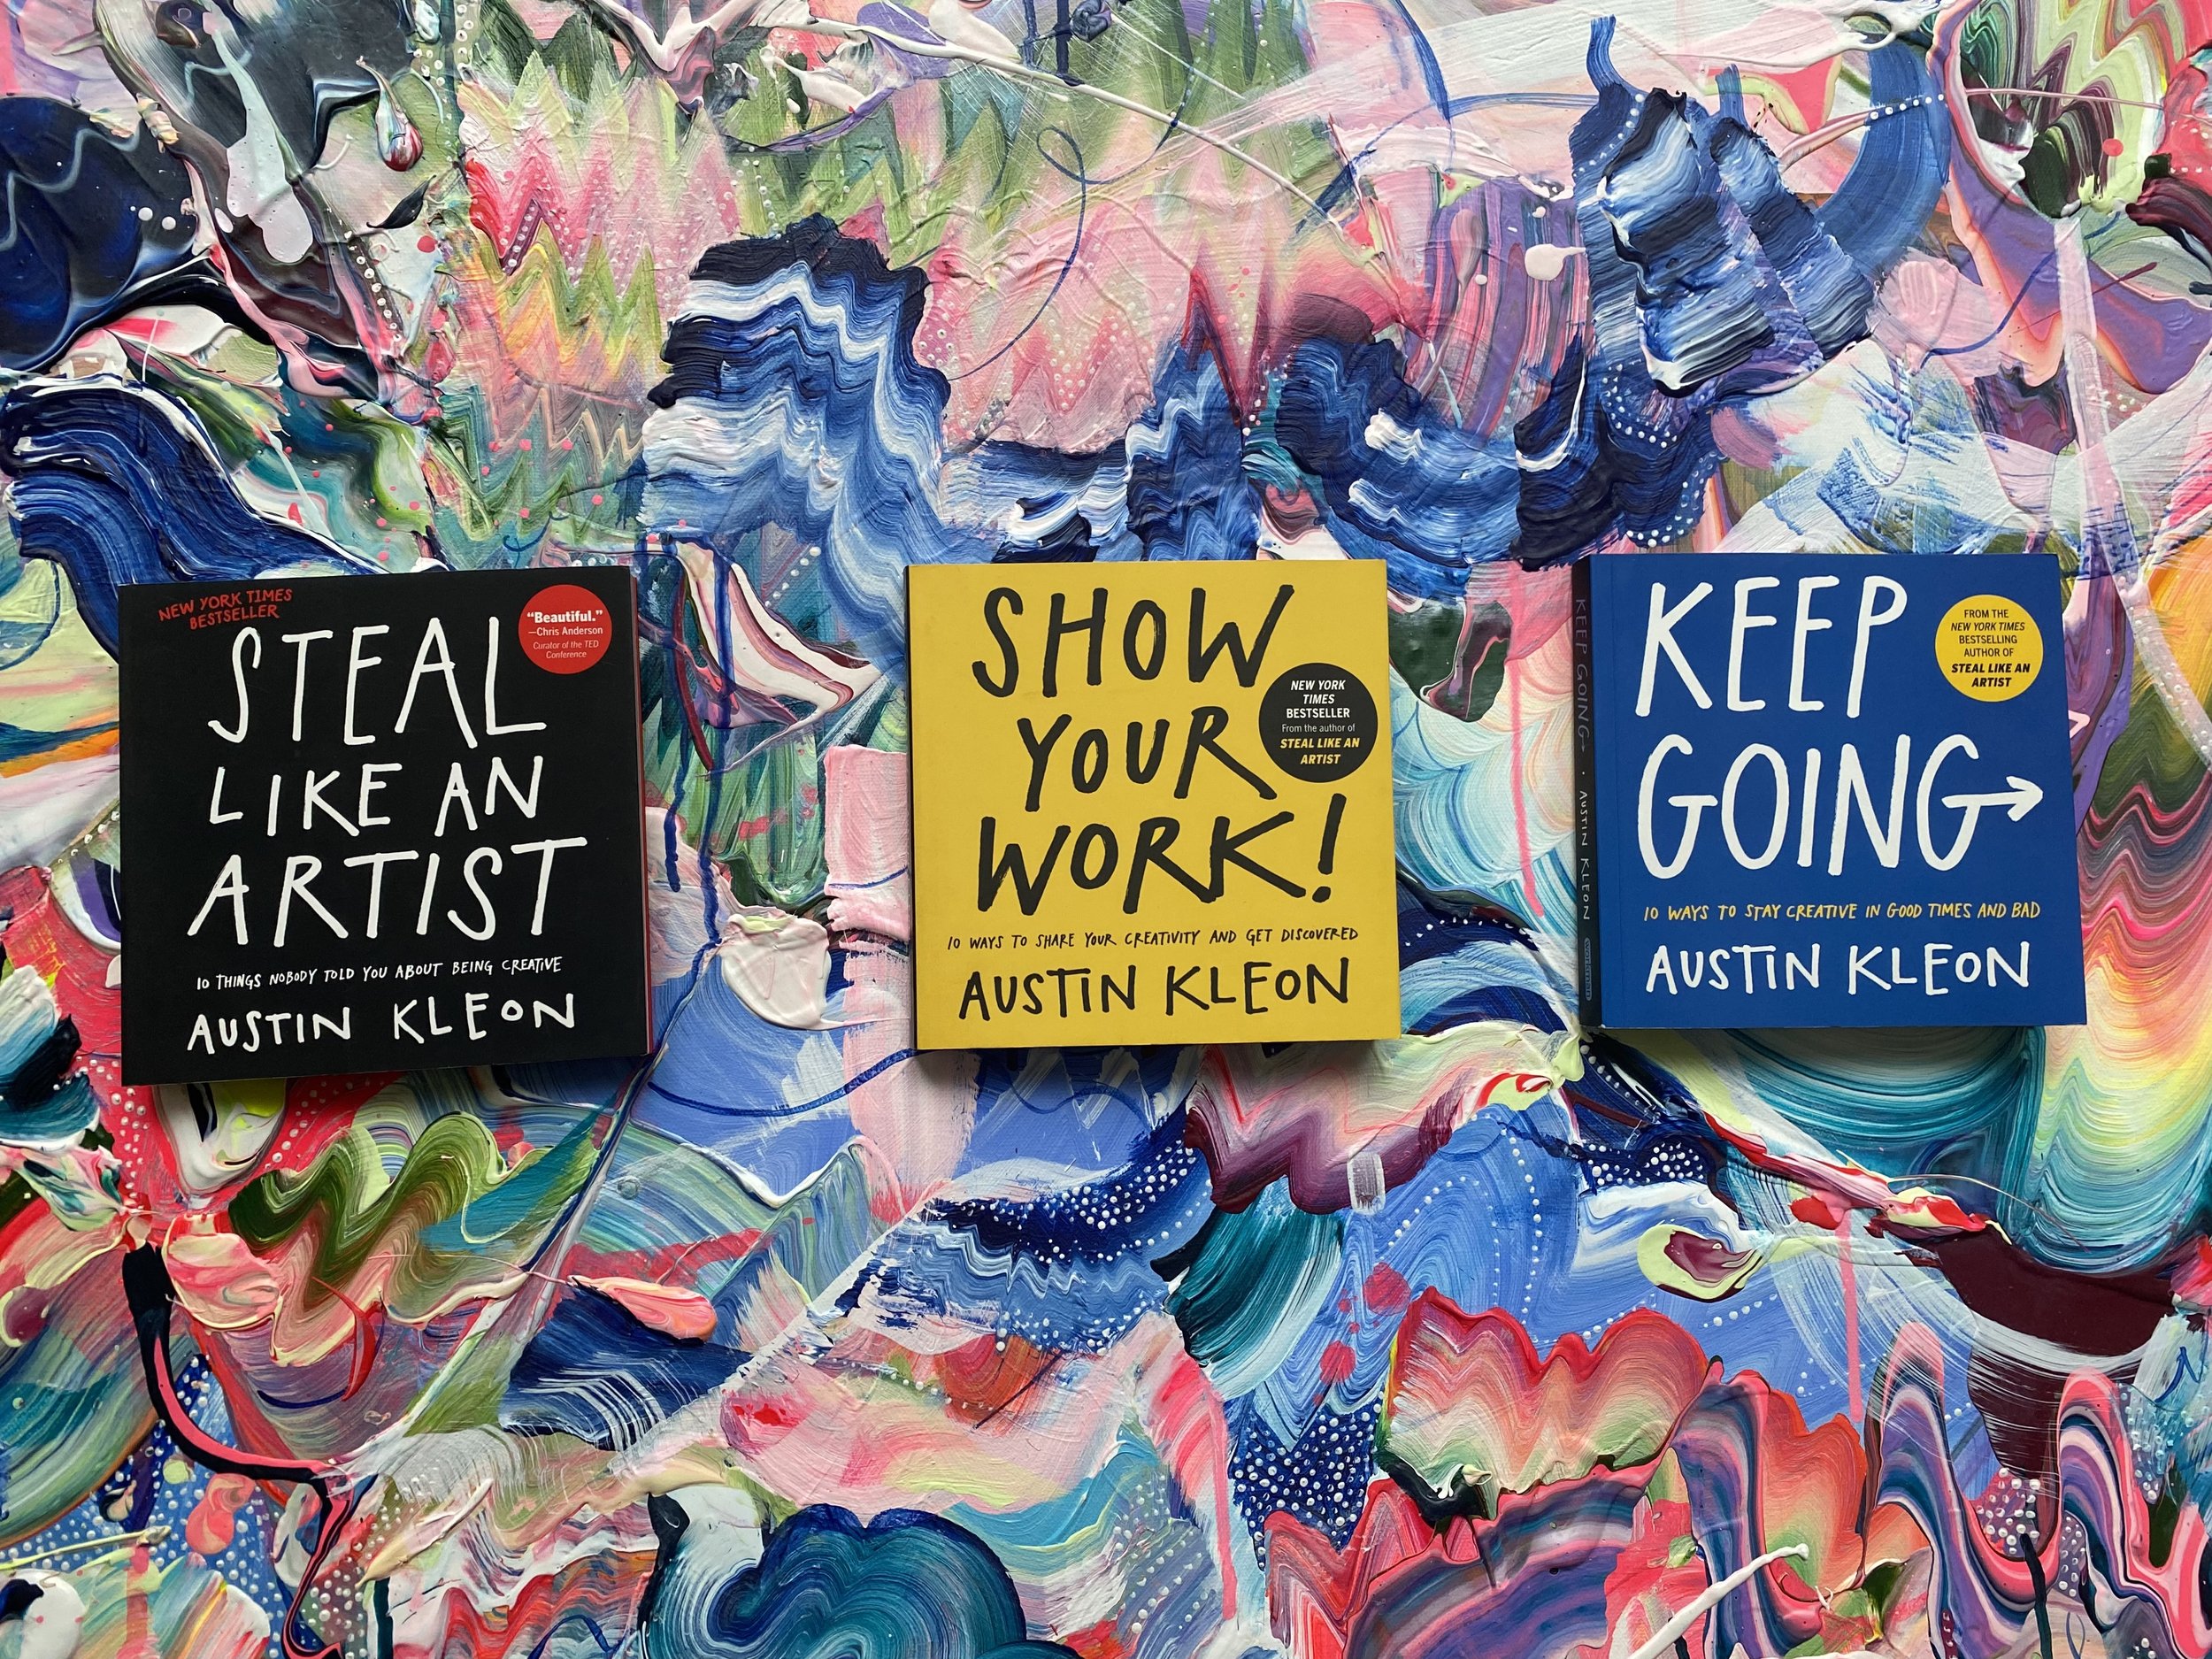 NEW YORK TIMES
BESTSELLER
"Beautiful."
—Chris Anderson
Curator of the TED
Conference
STEAL
LIKE AN
ARTIST
10 THINGS NOBODY TOLD YOU ABOUT BEING CREATIVE
AUSTIN KLEON
SHOW
YOUR
WORK!
NEW YORK
TIMES
BESTSELLER
From the author of
STEAL LIKE AN
ARTIST
10 WAYS TO SHARE YOUR CREATIVITY AND GET DISCOVERED
AUSTIN KLEON
KEEP GOING→ · AUSTIN KLEON
KEEP
GOING→
FROM THE
NEW YORK TIMES
BESTSELLING
AUTHOR OF
STEAL LIKE AN
ARTIST
10 WAYS TO STAY CREATIVE IN GOOD TIMES AND BAD
AUSTIN KLEON